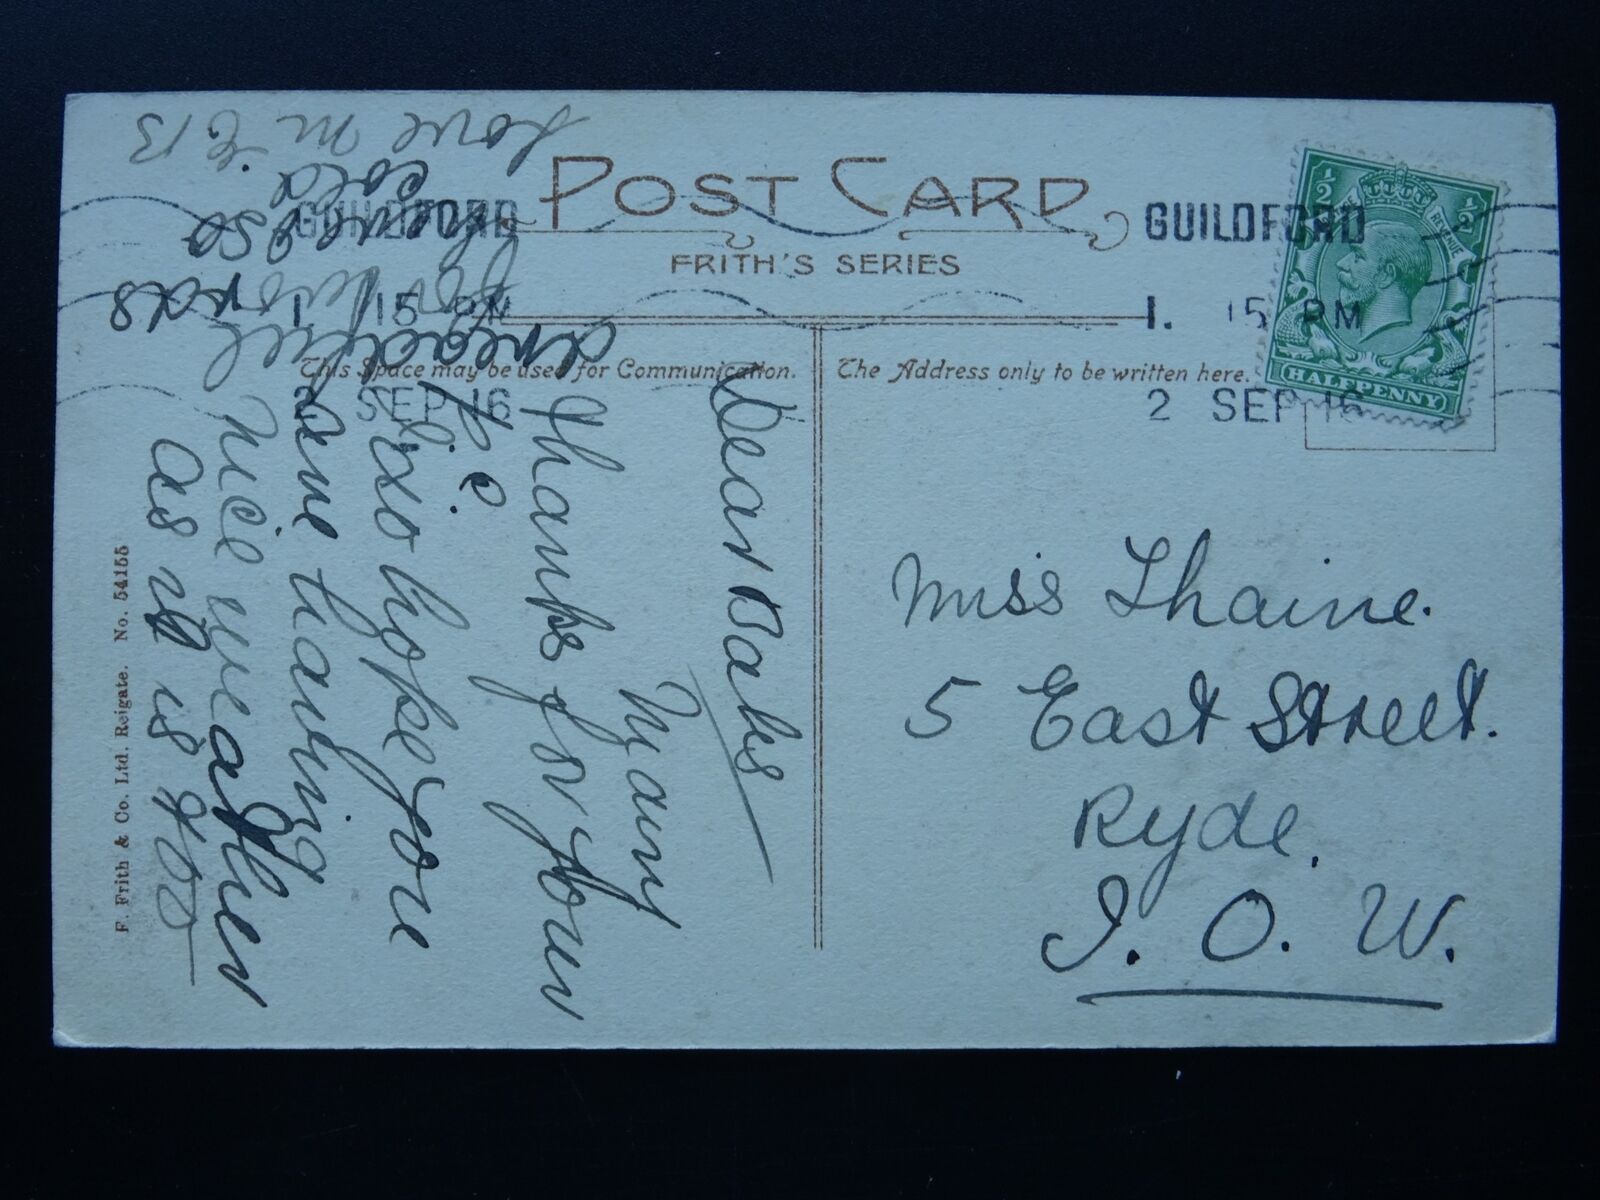 POST CARD
FRITH'S SERIES
GUILDFORD
1. 15 PM
2 SEP 16
GUILDFORD
1. 15 PM
2 SEP 16
½ ½
REVENUE
HALFPENNY
This Space may be used for Communication.
The Address only to be written here.
Dear Babs
Many
thanks for your
hope you
are having
nice weather
as it is
cold
Love M E B
Miss Thaine.
5 East Street.
Ryde.
I. O. W.
F. Frith & Co. Ltd. Reigate. No. 54155